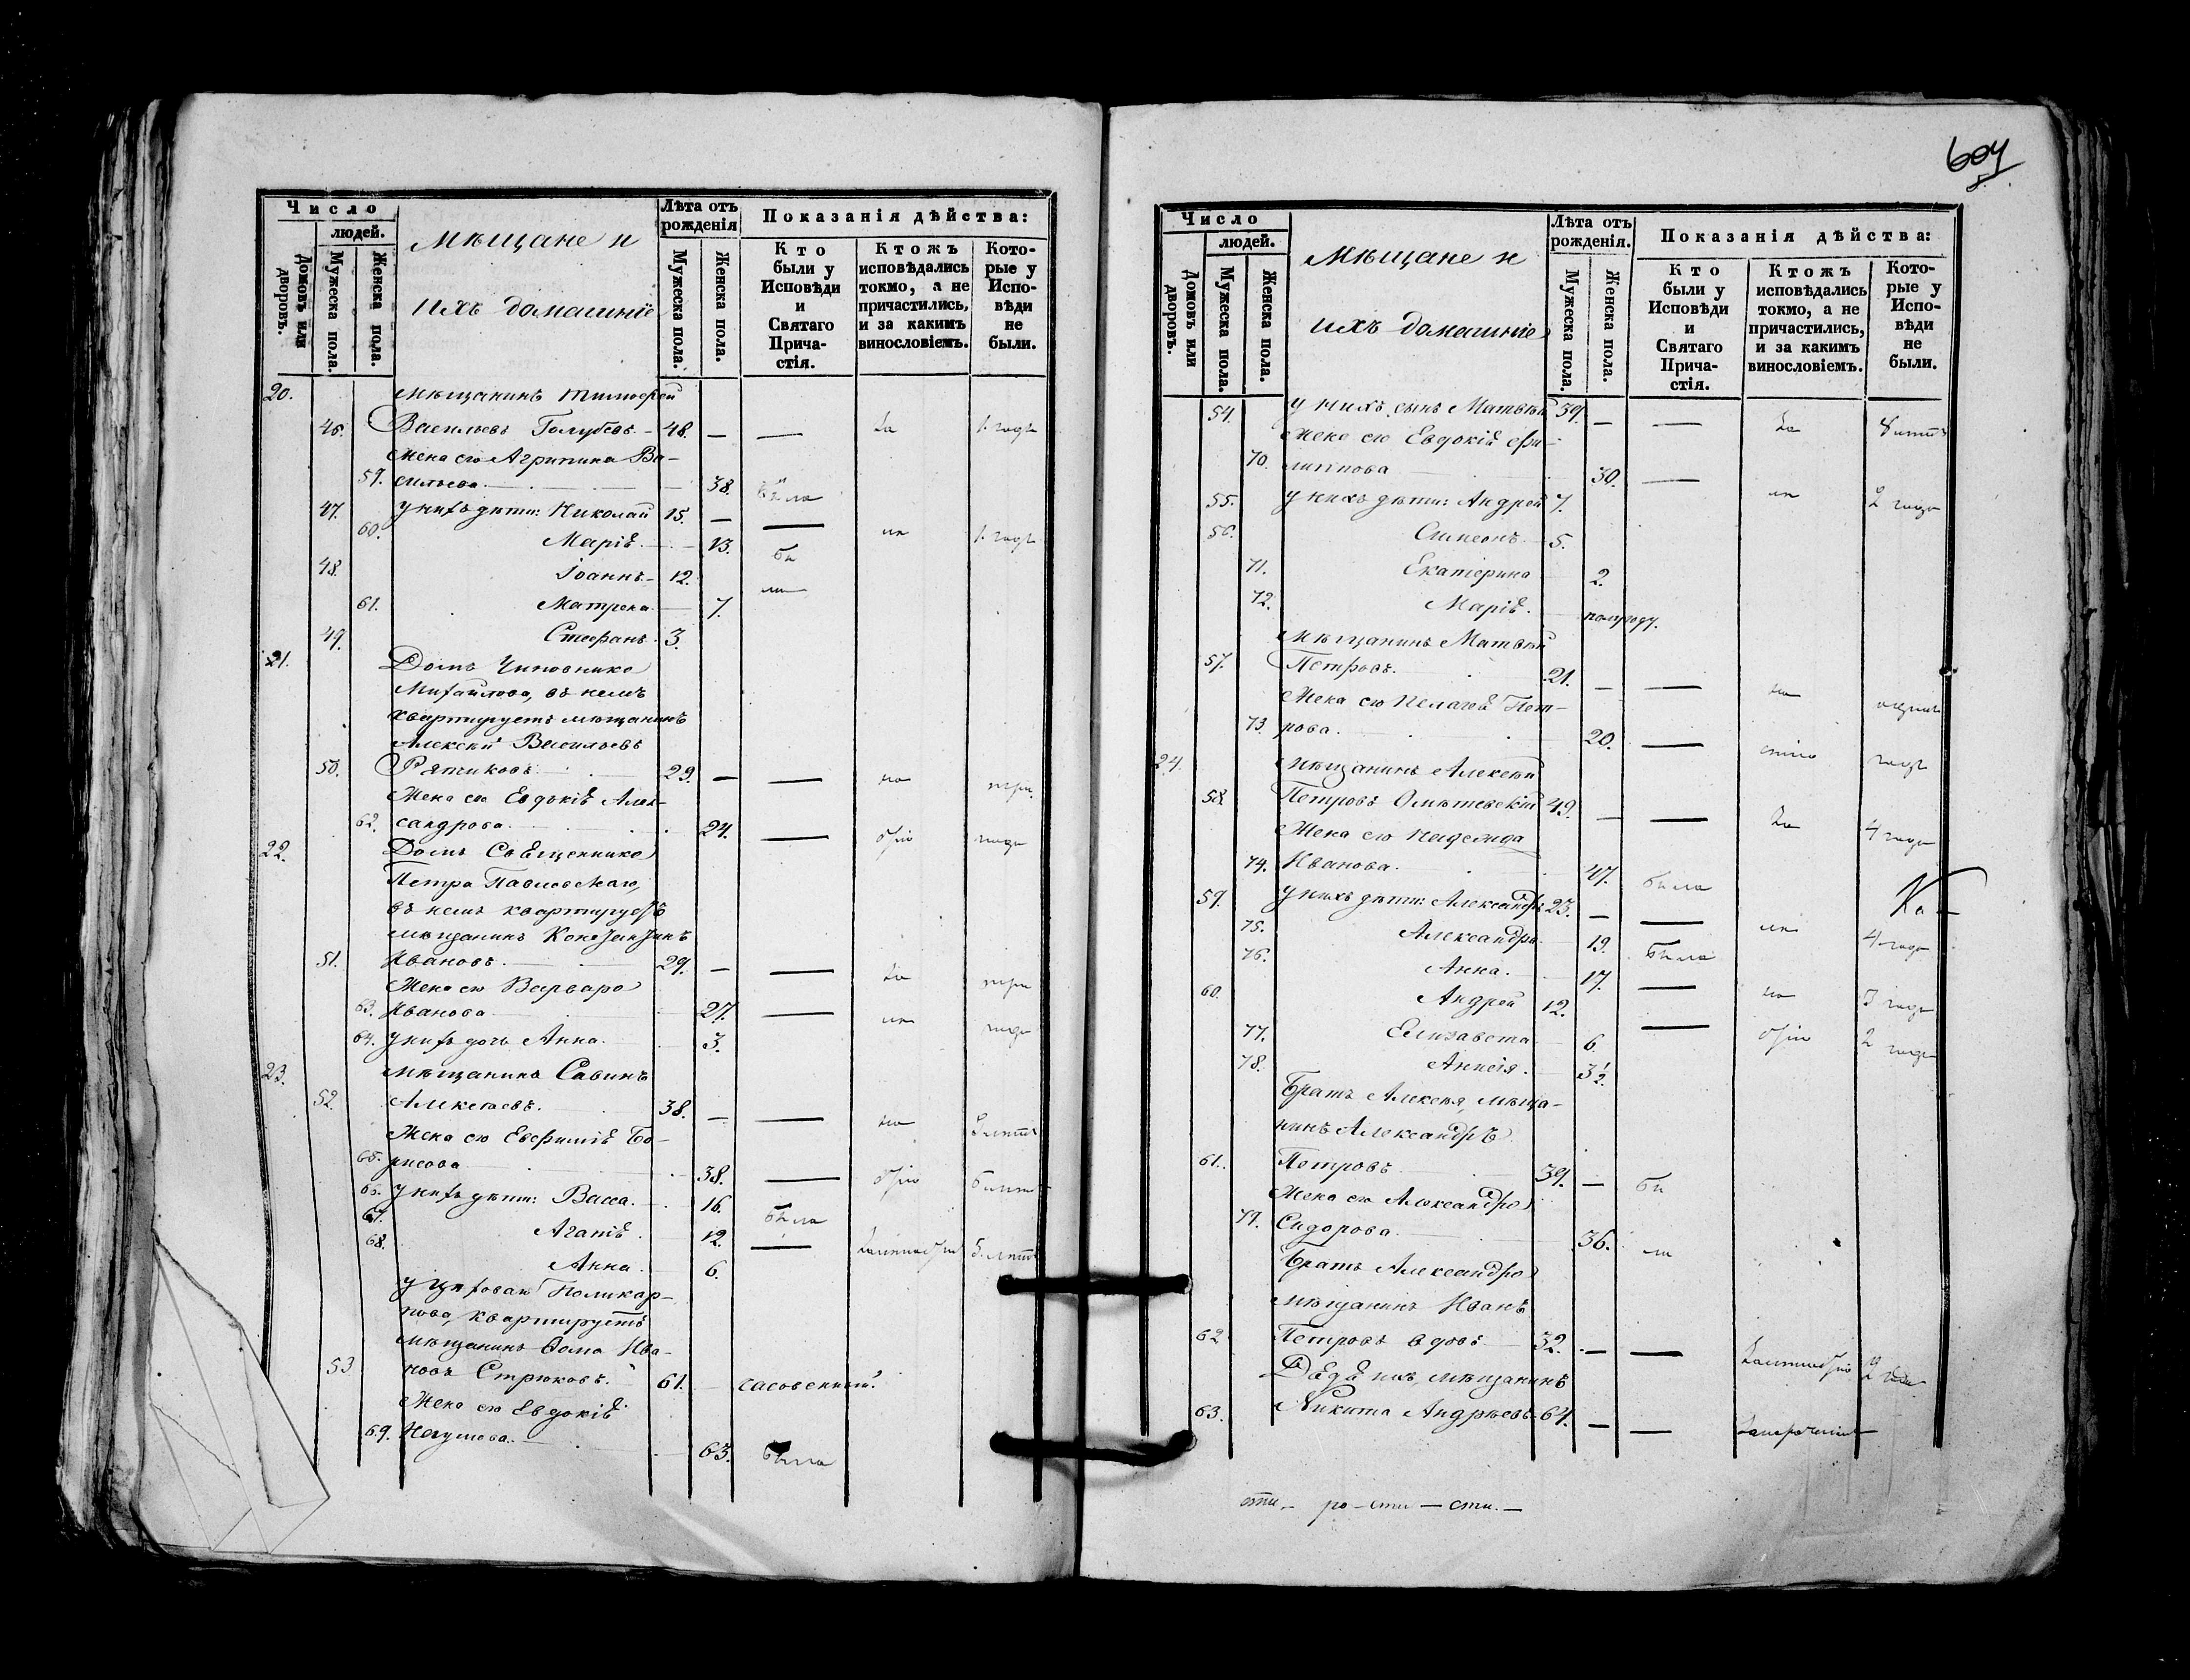 Число
людей.
Домовъ или дворовъ.
Мужеска пола.
Женска пола.
Мѣщане и
ихъ домашніе
Лѣта отъ рожденія
Мужеска пола.
Женска пола.
Показанія дѣйства:
Кто были у Исповѣди и Святаго Прича-стія.
Ктожъ исповѣдались токмо, а не причастились, и за какимъ винословіемъ.
Кото-рые у Испо-вѣди не были.
20. Мѣщанинъ Тимофей
46. Васильевъ Голубевъ. 48. — — 1. годъ
Жена его Агрипина Ва-
59. сильева. 38. была
47. у нихъ дѣти: Николай 15. — — 1. годъ
60. Марія. 13. бы
48. Іоаннъ 12. ли
61. Матрена. 7.
49. Стефанъ. 3.
21. Домъ Чиновника
Михайлова, въ немъ
квартируетъ мѣщанинъ
Алексѣй Васильевъ
50. Рятиковъ. 29. — — три
Жена его Евдокія Алек-
62. сандрова. 24. — года
22. Домъ Священника
Петра Павловскаго,
въ немъ квартируетъ
мѣщанинъ Константинъ
51. Ивановъ. 29. — — три
Жена его Варвара
63. Иванова 27. — года
64. у нихъ дочь Анна. 3.
23. Мѣщанинъ Савинъ
52. Алексѣевъ. 38. — —
Жена его Евфимія Бо-
65. рисова 38. —
66. у нихъ дѣти: Васса. 16. была
67. Агапія. 12. — 5. лѣтъ
68. Анна. 6.
у Поликар-
пова, квартируетъ
мѣщанинъ Фома Ива-
53 новъ Стрюковъ. 61. часовенный.
Жена его Евдокія
69. 63. была
604
Число
людей.
Домовъ или дворовъ.
Мужеска пола.
Женска пола.
Мѣщане и
ихъ домашніе
Лѣта отъ рожденія.
Мужеска пола.
Женска пола.
Показанія дѣйства:
Кто были у Исповѣди и Святаго Прича-стія.
Ктожъ исповѣдались токмо, а не причастились, и за какимъ винословіемъ.
Кото-рые у Испо-вѣди не были.
54. у нихъ сынъ Матвѣй 39. — — лѣтъ
Жена его Евдокія Фи-
70. липпова 30. — 2 года
55. у нихъ дѣти: Андрей 7.
56. Симеонъ 5.
71. Екатерина 2.
72. Марія. полгоду.
Мѣщанинъ Матвѣй
57. Петровъ. 21. — — одинъ
Жена его Пелагія Пет-
73. рова. 20. — годъ
24. Мѣщанинъ Алексѣй
58. Петровъ 49. — — 4 года
Жена его Надежда
74. Иванова. 47. была
59. у нихъ дѣти: Александръ 23. — — 4 года
75. Александра 19. была
76. Анна. 17. — 3 года
60. Андрей 12. — 2 года
77. Елизавета 6.
78. Анисія. 3½.
Братъ Алексѣя, мѣща-
нинъ Александръ
61. Петровъ 39. — бы
Жена его Александра
79. Сидорова 36. ли
Братъ Александра
мѣщанинъ Иванъ
62. Петровъ вдовъ 32. — —
Дядя ихъ, мѣщанинъ
63. Никита Андрѣевъ 64. — —
ро — сти — сти. —